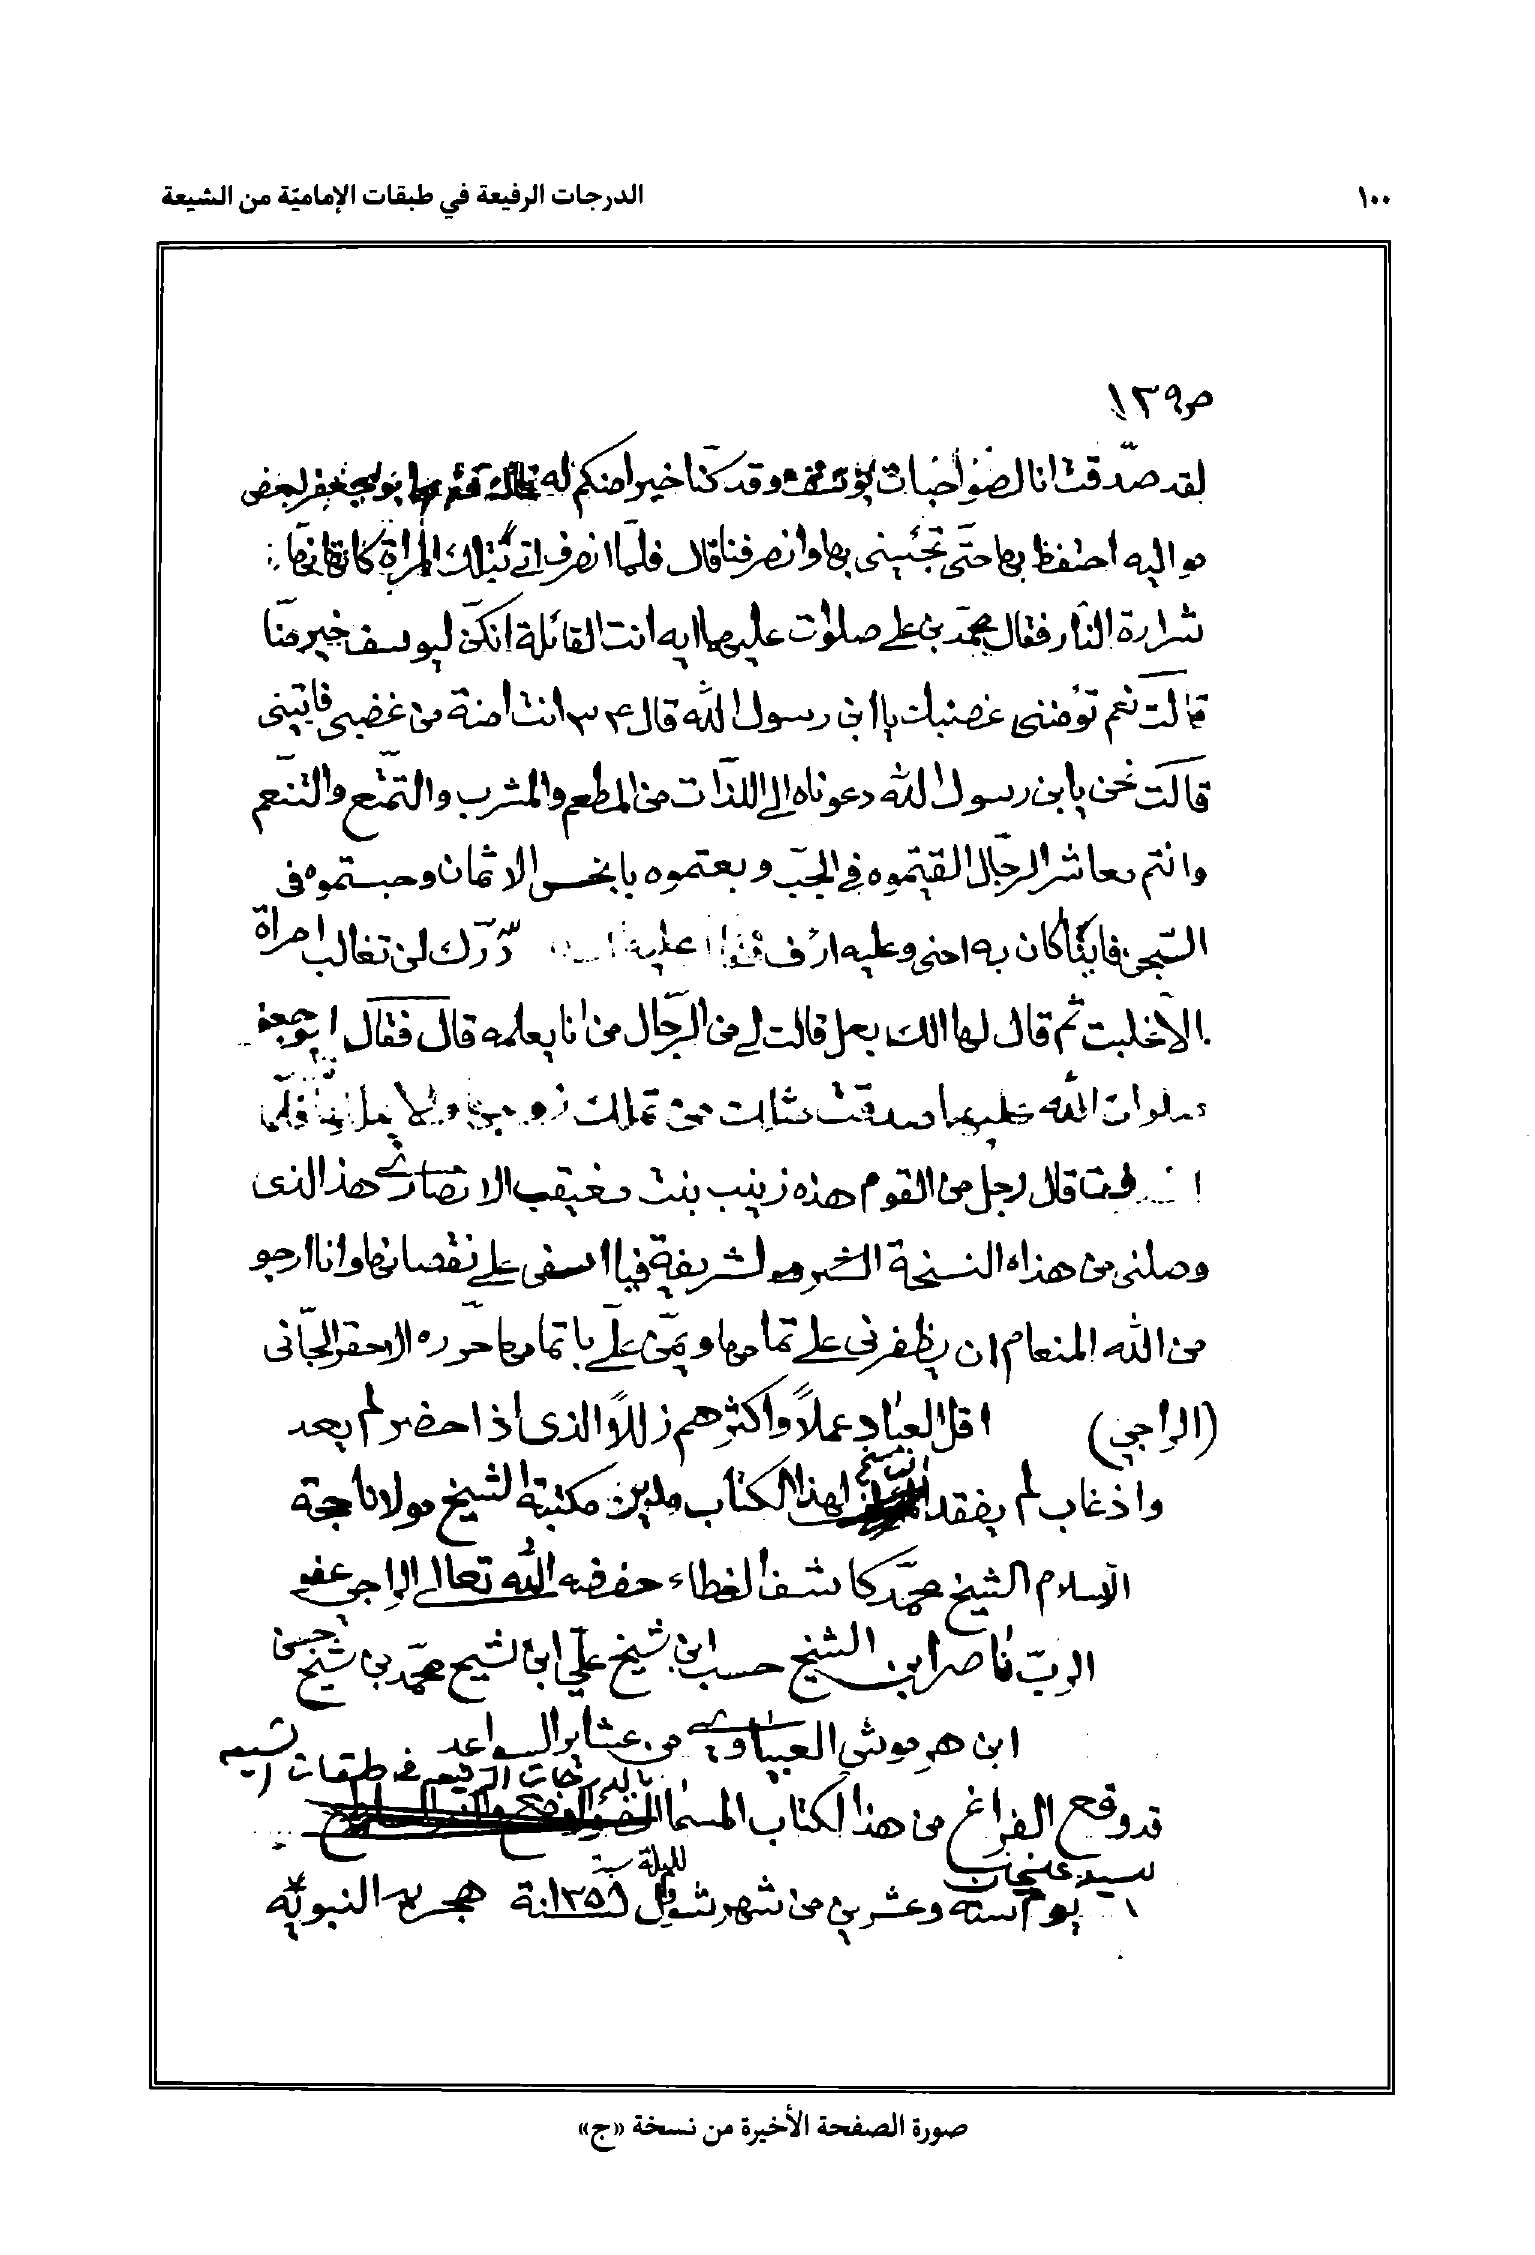 ١٠٠
الدرجات الرفيعة في طبقات الإماميّة من الشيعة
ص١٣٩
لقد صدّقت انا لصواحبات يوسف وقد كنّا خيرا منكم له فقال ابو جعفر لبعض
مواليه احتفظ بها حتّى تجئينى بها وانصرفنا قال فلمّا انصرف اتى بتلك المراة كانها
شرارة النّار فقال محمّد بن على صلوات عليهما ايه انت القائلة انكنّ ليوسف خير منّا
قالت نعم تؤمننى غضبك يا ابن رسول الله قال نعم انت امنة من غضبى فابينى
قالت نحن يابن رسول الله دعوناه الى اللذّات من المطعم والمشرب والتمّتع والتنعم
وانتم معاشر الرجّال القيتموه فى الجبّ وبعتموه بابخس الاثمان وحبستموه فى
السّجن فايّنا كان به احنى وعليه ارئف فقال عليه درّك لن تغالب امراة
الاّ غلبت ثم قال لها الك بعل قالت لى من الرجّال من انا بعلمه قال فقال ابو جعفر
صلوات الله عليهما صدقت مثلك من تملك زوجها ولا يملكها فلّما
قال رجل من القوم هذه زينب بنت معيقب الانصارى هذ الذى
وصلنى من هذاه النسخة الشريفة فيا اسفى على نقصانها وانا ارجو
من الله المنعام ان يظفرنى على تمامها ويمّن علّى باتمامها حرّره الاحقر الجّانى
(الراجي) اقل العباد عملاً واكثرهم زللاً الذى اذا حضر لم يعد
واذ غاب لم يفقد لهذا الكتاب من مكتبة الشيخ مولانا حجة
الاسلام الشيخ محمّد كاشف الغطاء حفضه الله تعالى الراجى عفو
الربّ ناصر ابن الشيخ حسب ابن شيخ علّي ابن الشيح محمّد بن شيخ حسن
ابن هرموشى العيساوى من عشاير السواعد
بالدرجات الرفيعه في طبقات الشيعه
قد وقع الفراغ من هذا لكتاب المسما
لسيد عليخان
يوم سته وعشرين من شهر شوال لسنة ١٣٥٨ هجريه النبويّه
صورة الصفحة الأخيرة من نسخة «ج»